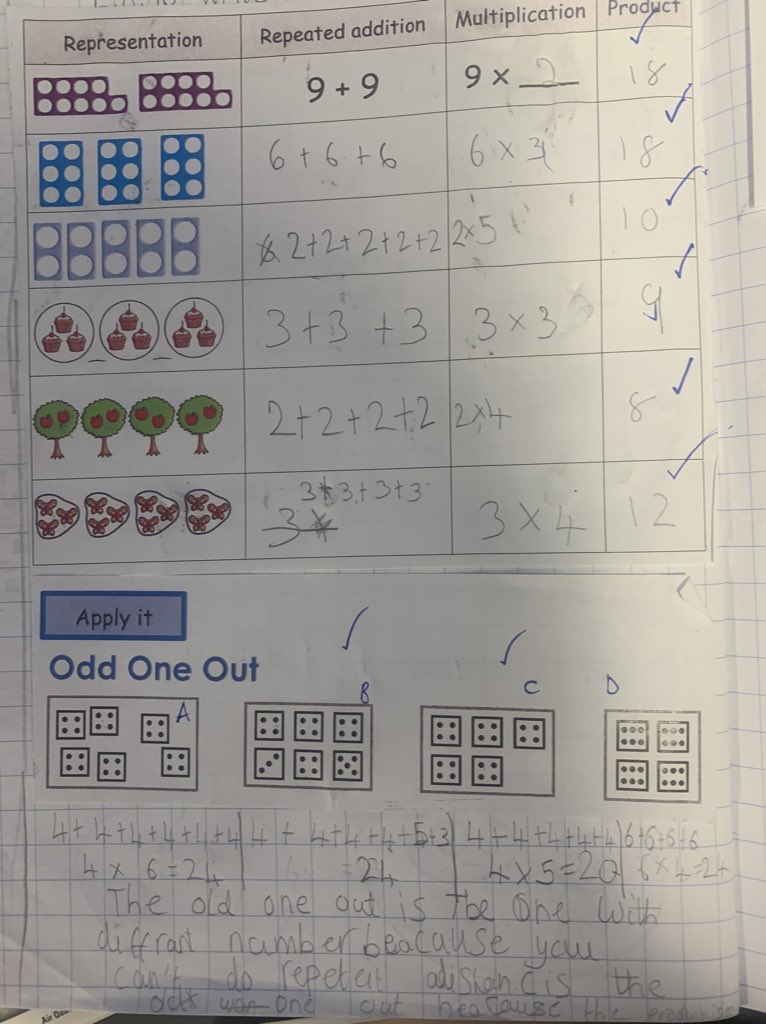 Representation Repeated addition Multiplication Product
9 + 9 9 × 2 18
6 + 6 + 6 6 × 3 18
2+2+2+2+2 2×5 10
3+3 +3 3 × 3 9
2+2+2+2 2×4 8
3+3+3+3
3 3 × 4 12
Apply it
Odd One Out
A B C D
4+4+4+4+4+4 4 + 4+4+4+5+3 4+4+4+4+4 6+6+6+6
4 × 6 = 24 =24 4×5=20 6×4=24
The old one out is the one with
diffrant number beacause you
can't do repeteat adistion C is the
odd one out beacause the product is